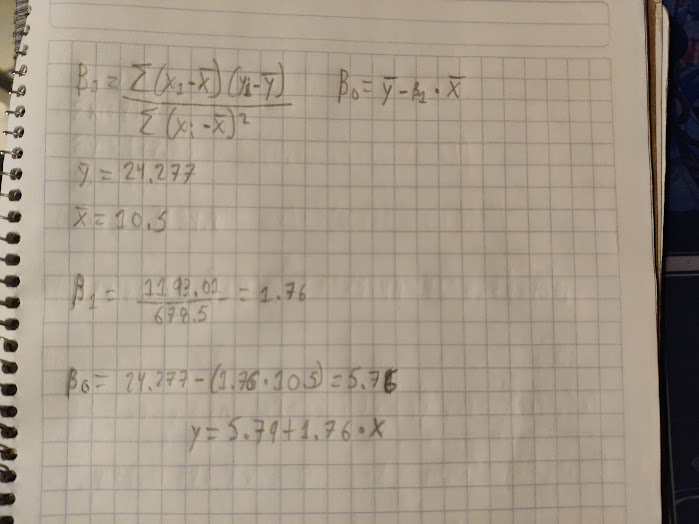 β₁ = Σ(x₁-x̄)(yi-ȳ) / Σ(xi-x̄)² β₀ = ȳ-β₁·x̄
ȳ = 24.277
x̄ = 10.5
β₁ = 1193.01 / 678.5 = 1.76
β₀ = 24.277-(1.76·10.5) = 5.76
y = 5.79+1.76·x